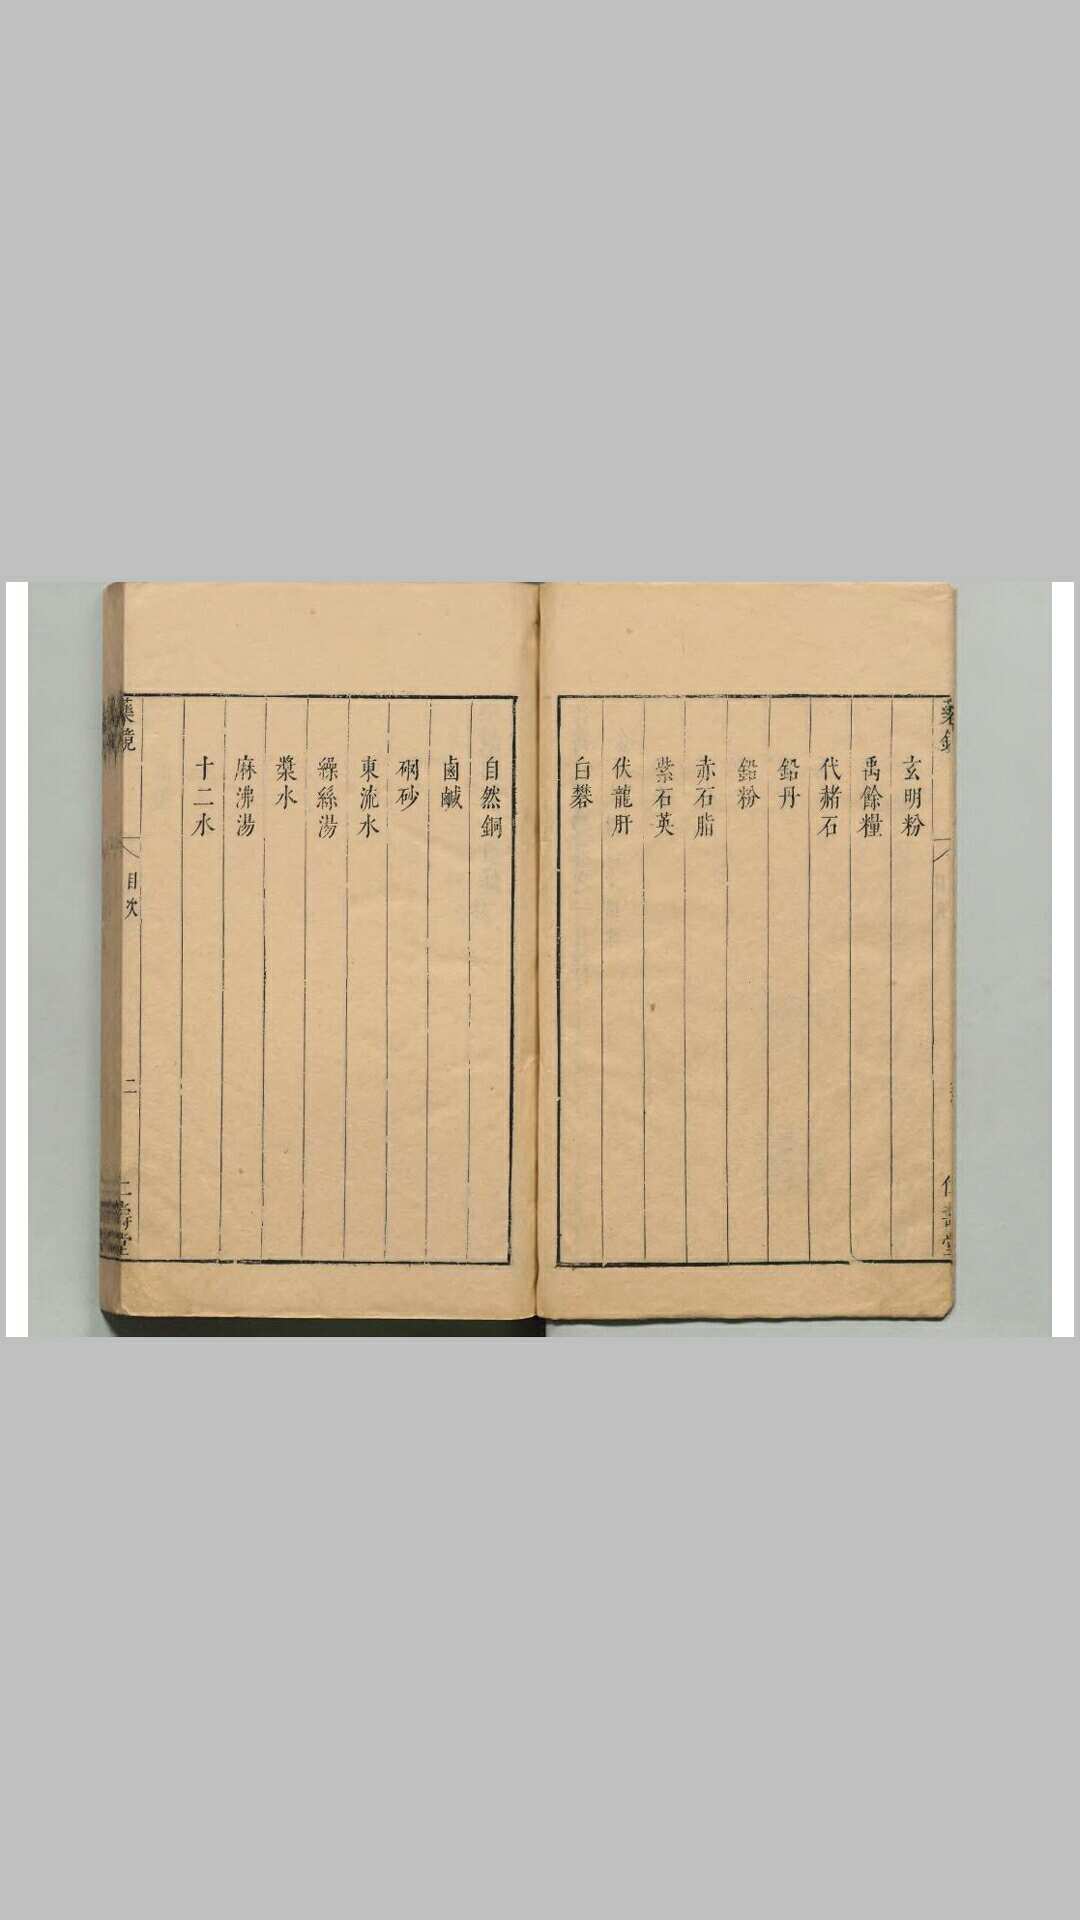 玄明粉
禹餘糧
代赭石
鉛丹
鉛粉
赤石脂
紫石英
伏龍肝
白礬
自然銅
鹵鹹
硇砂
東流水
繰絲湯
漿水
麻沸湯
十二水
藥鏡
目次
二
仁壽堂